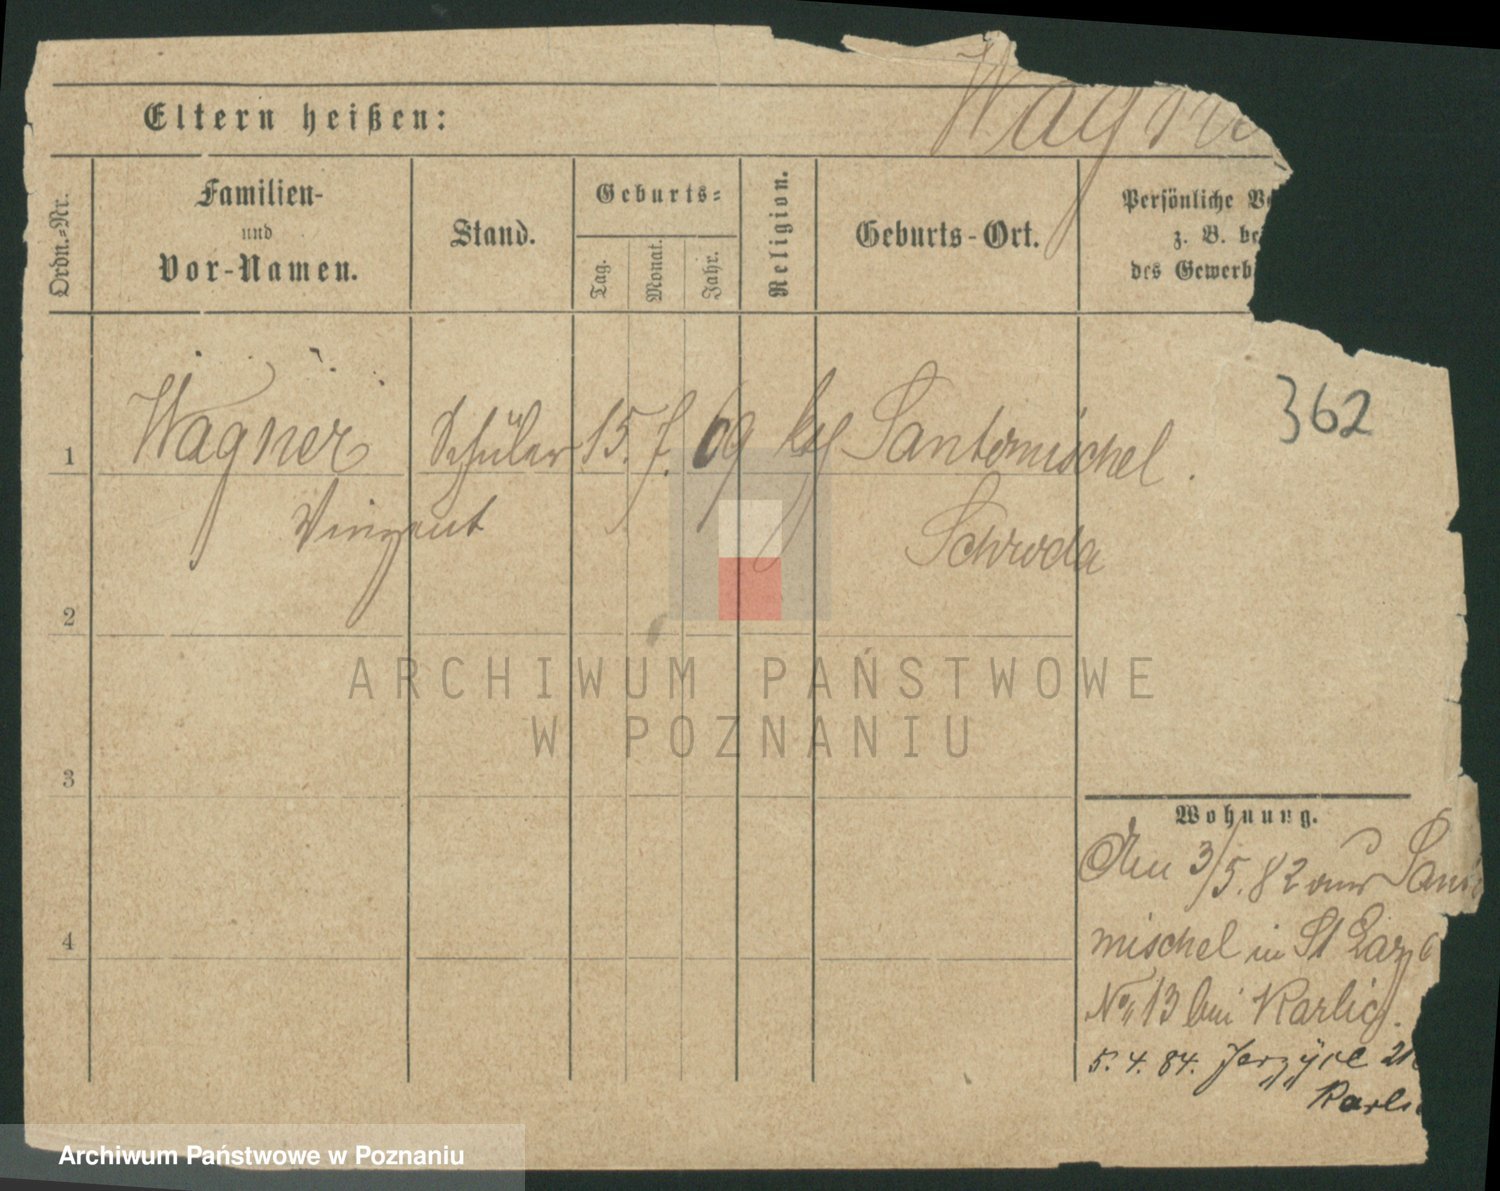 Wagne
Eltern heißen:
Ordn.-Nr.
Familien-
und
Vor-Namen.
Stand.
Geburts-
Tag.
Monat.
Jahr.
Religion.
Geburts-Ort.
Persönliche
z. B. be
des Gewerb
1
Wagner
Schüler
15.
7.
69
kth
Santomischel.
362
Vinzent
Schroda
2
ARCHIWUM PAŃSTWOWE
W POZNANIU
3
Wohnung.
Am 3/5. 82 aus Santo
mischel in St Laz
No 13 bei Karlic.
4
5. 4. 84. Jerzyce 21
Karli
Archiwum Państwowe w Poznaniu